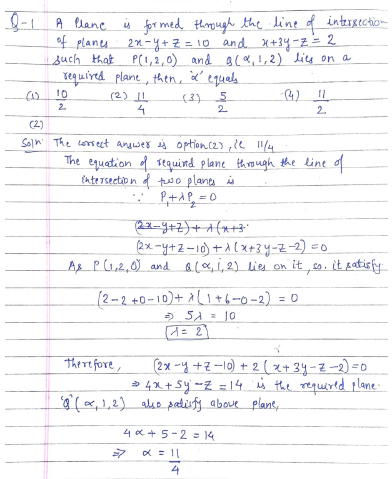 Q-1 A Plane is formed through the line of intersection
of planes 2x-y+z=10 and x+3y-z=2
such that P(1,2,0) and Q(α,1,2) lies on a
required plane, then, 'α' equals
(1) 10/2 (2) 11/4 (3) 5/2 (4) 11/2
(2)
Soln The correct answer is option(2), ie 11/4
The equation of required plane through the line of
intersection of two planes is
∵ P₁+λP₂=0
(2x-y+z)+λ(x+3.
(2x-y+z-10)+λ(x+3y-z-2)=0
As P(1,2,0) and Q(α,1,2) lies on it, so. it satisfy
(2-2+0-10)+λ(1+6-0-2) = 0
⇒ 5λ = 10
λ = 2
Therefore, (2x-y+z-10)+2(x+3y-z-2)=0
⇒ 4x+5y-z=14 is the required plane.
'Q'(α,1,2) also satisfy above plane,
4α+5-2=14
⇒ α = 11/4